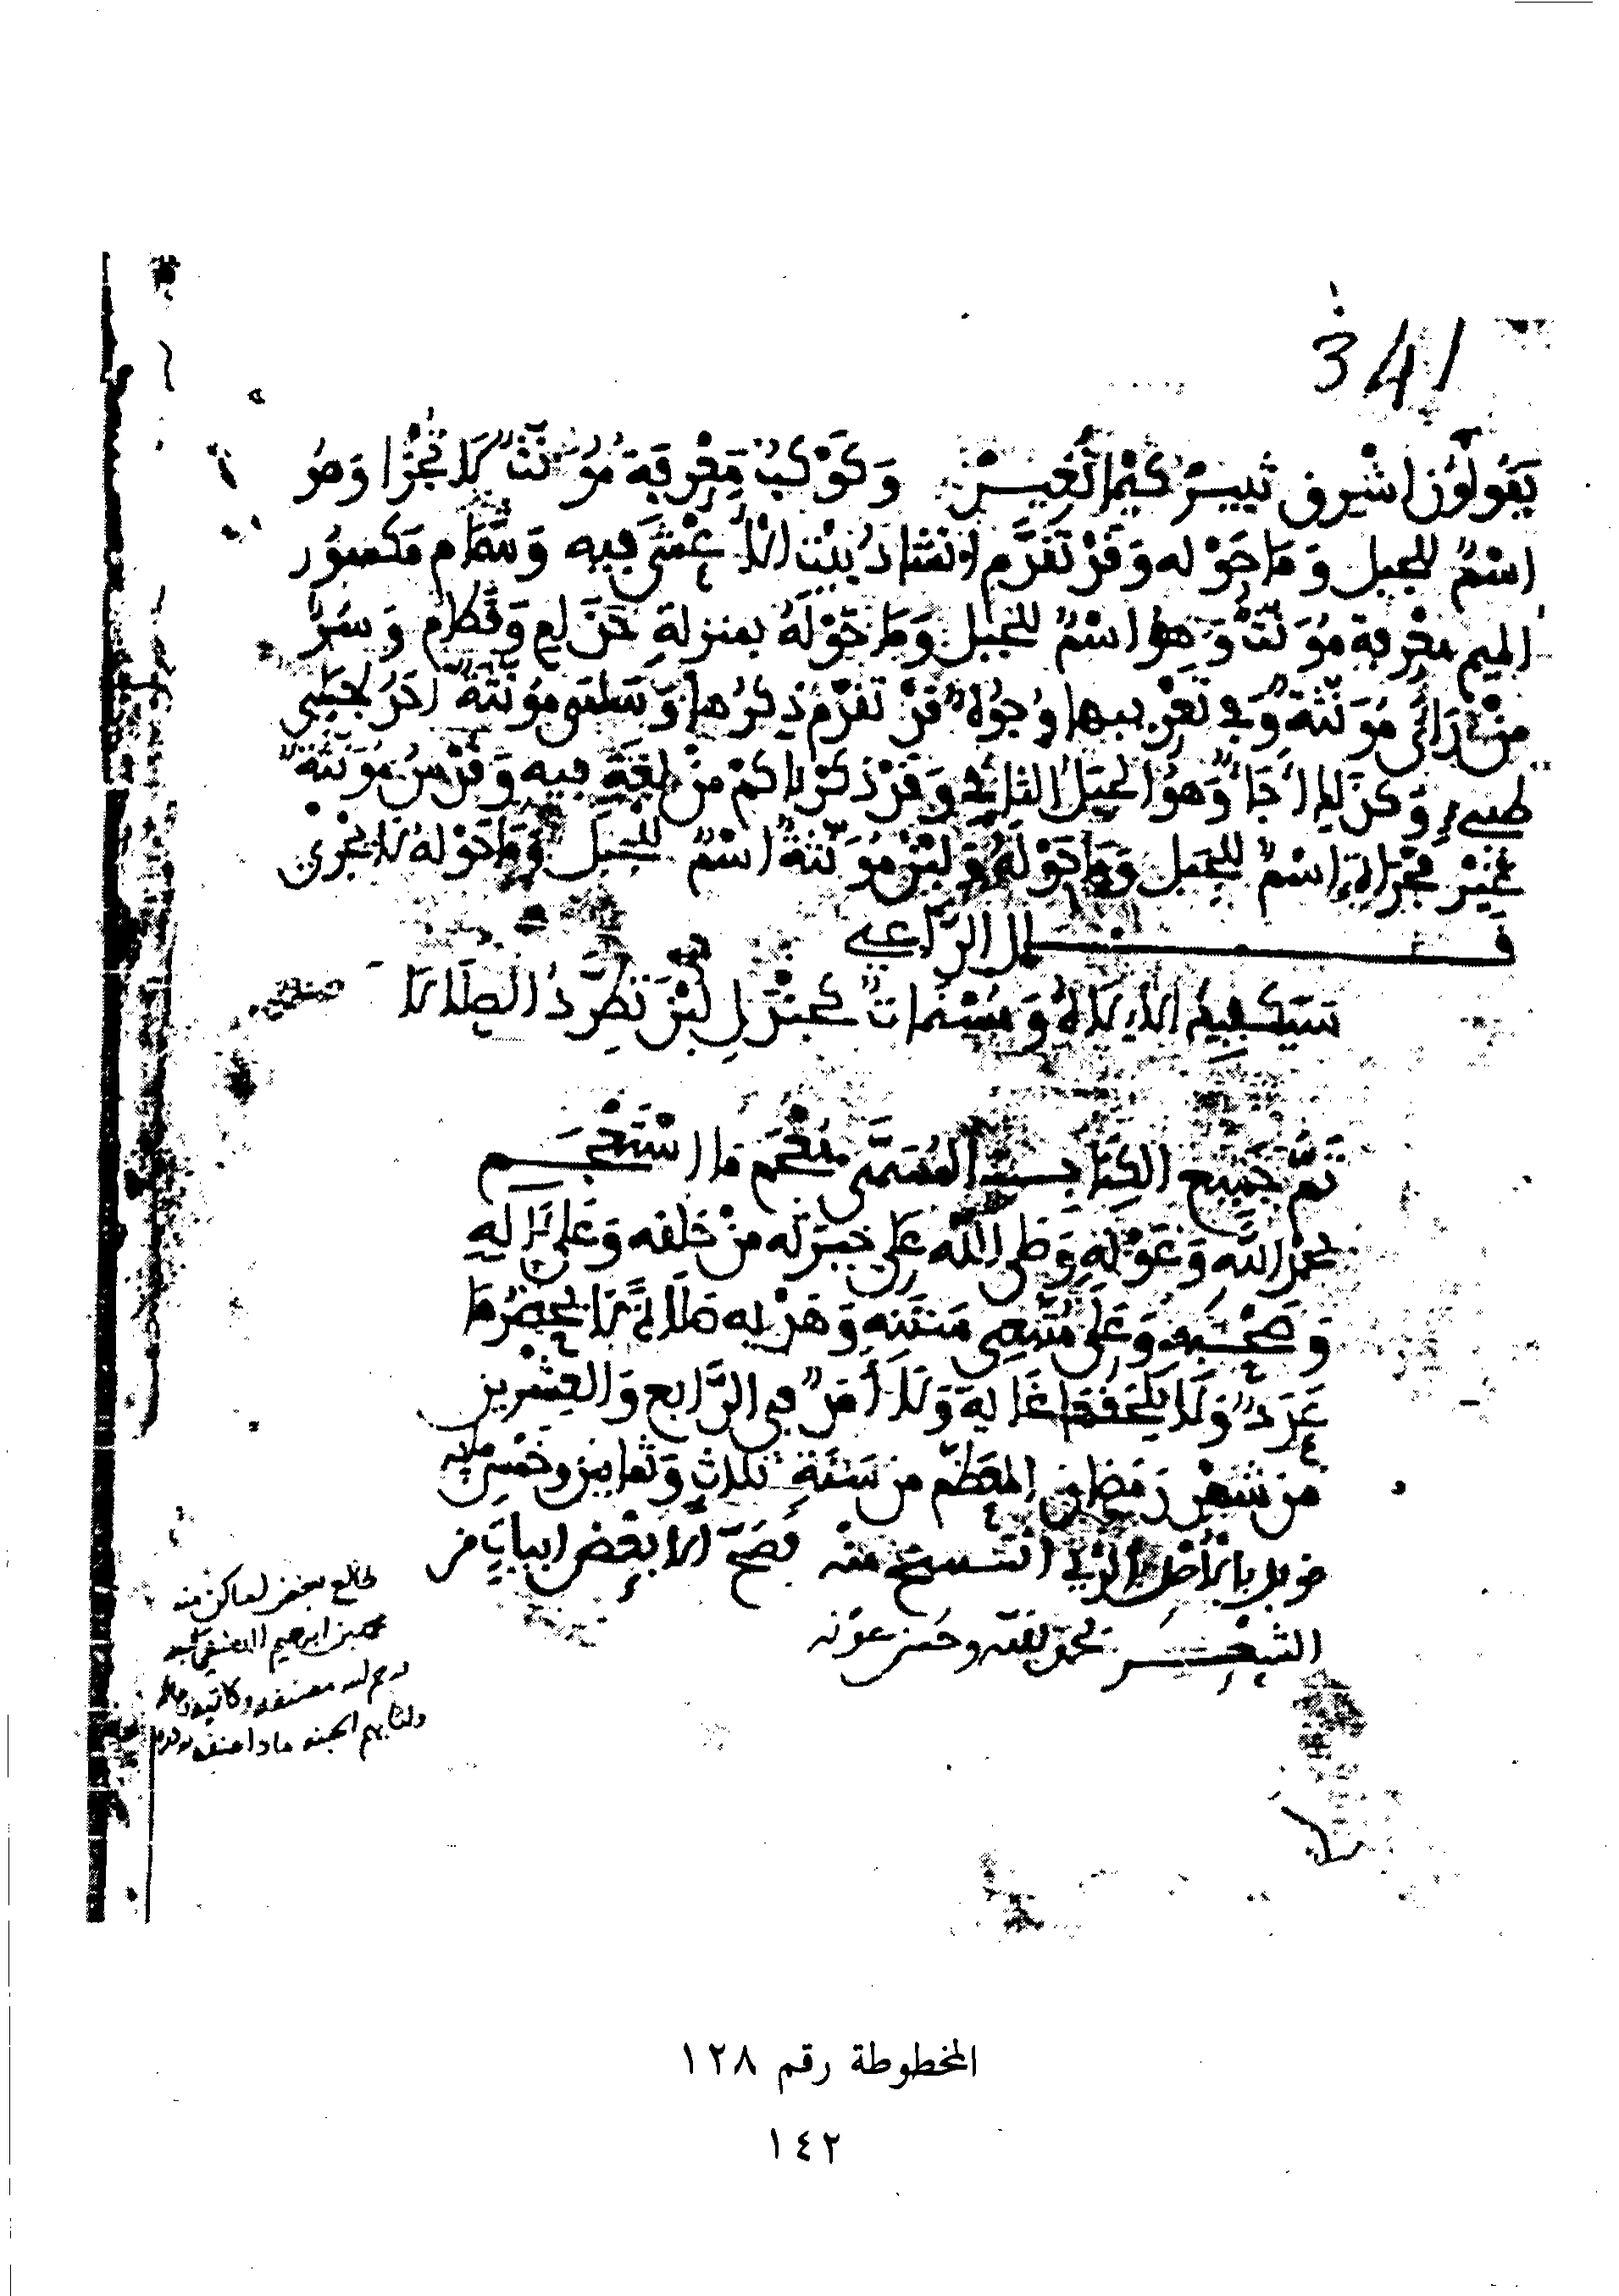 341
يقولون اشرق ثبير كيما نغير وكوكب معرفة مؤنث لا تجرا وهو
اسم للجبل وما حوله وقد تقدم انشاد بيت الاعشى فيه وشمام مكسور
الميم معرفة مؤنث وهو اسم للجبل وما حوله بمنزلة حذام وقطام و
من رأى مؤنثة وفي تعريبها وجوه قد تقدم ذكرها وسلمى مؤنثة احد جبلي
طيىء وكذلك اجأ وهو الجبل الثاني وقد ذكرنا كم من لغة فيه وقدس مؤنثة
غير مجراة اسم للجبل وما حوله ولبن مؤنثة اسم للجبل وما حوله لا يجرى
قال الراعي
سيكفيك الاله ومسنمات كجندل لبن تطرد الصلالا
تم جميع الكتاب المسمى معجم ما استعجم
بحمد الله وعونه وصلى الله على خيرته من خلقه وعلى اله
وصحبه وعلى متبعي سنته وهديه صلاة لا يحصرها
عدد ولا يلحقها غاية ولا امد في الرابع والعشرين
من شهر رمضان المعظم من سنة ثلاث وثمانين وخمس مائة
قوبل بالاصل الذي انتسخ منه فصح الا بعض ابيات من
الشعر بحمد الله وحسن عونه
طالع بعضه لماكن منه
بن ابرهيم
المخطوطة رقم ١٢٨
١٤٢